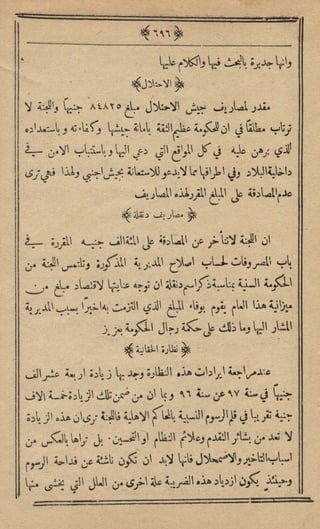 ﴿ ٦٩٦ ﴾
وانها جديرة بالبحث فيها والكلام عليها
﴿ الاحتلال ﴾
مقدر لمصاريف جيش الاحتلال مبلغ ٨٤٨٢٥ جنيهاً واللجنة لا
ترتاب مطلقاً في ان للحكومة عظيم الثقة بامانة جيشها وكفاءته وباستعداده
الذي برهن عليه في كل المواقع التي دعي اليها وباستتباب الامن في
داخلية البلاد وفي اطرافها مما لا يدعو للاستعانة بجيش اجنبي ولهذا فهي ترى
عدم المصادقة على المبلغ المقرر لهذه المصاريف
﴿ مصاريف دنقلة ﴾
ان اللجنة لا تتأخر عن المصادقة على المئة الف جنيه المقررة في
باب المصروفات لحساب اصلاح المديرية المذكورة وتلتمس اللجنة من
الحكومة السنية بمناسبة ذكر اسم دنقلة ان توجه عنايتها لاقتصاد مبلغ من
ميزانية هذا العام يقوم بوفاء المبلغ الذي التزمت به اخيراً بسبب المديرية
المشار اليها وما ذلك على حكمة رجال الحكومة بعزيز
﴿ نظارة الحقانية ﴾
عند مراجعة ايرادات هذه النظارة وجد بها زيادة اربعة عشر الف
جنيهاً في سنة ٩٧ عن سنة ٩٦ وبما ان من ضمن تلك الزيادة خمسة الاف
جنية تقريباً في قلم الرسوم النسبية بالمحاكم الاهلية فاللجنة ترى ان هذه الزيادة
لا تعد من بشائر التقدم وعلائم النظام او التحسين. بل تراها بالعكس من
اسباب التاخير والاضمحلال فانها لابد ان تكون ناشئة عن فداحة الرسوم
وحينئذٍ يكون ازدياد هذه الضريبة علة اخرى من العلل التي يخشى منها